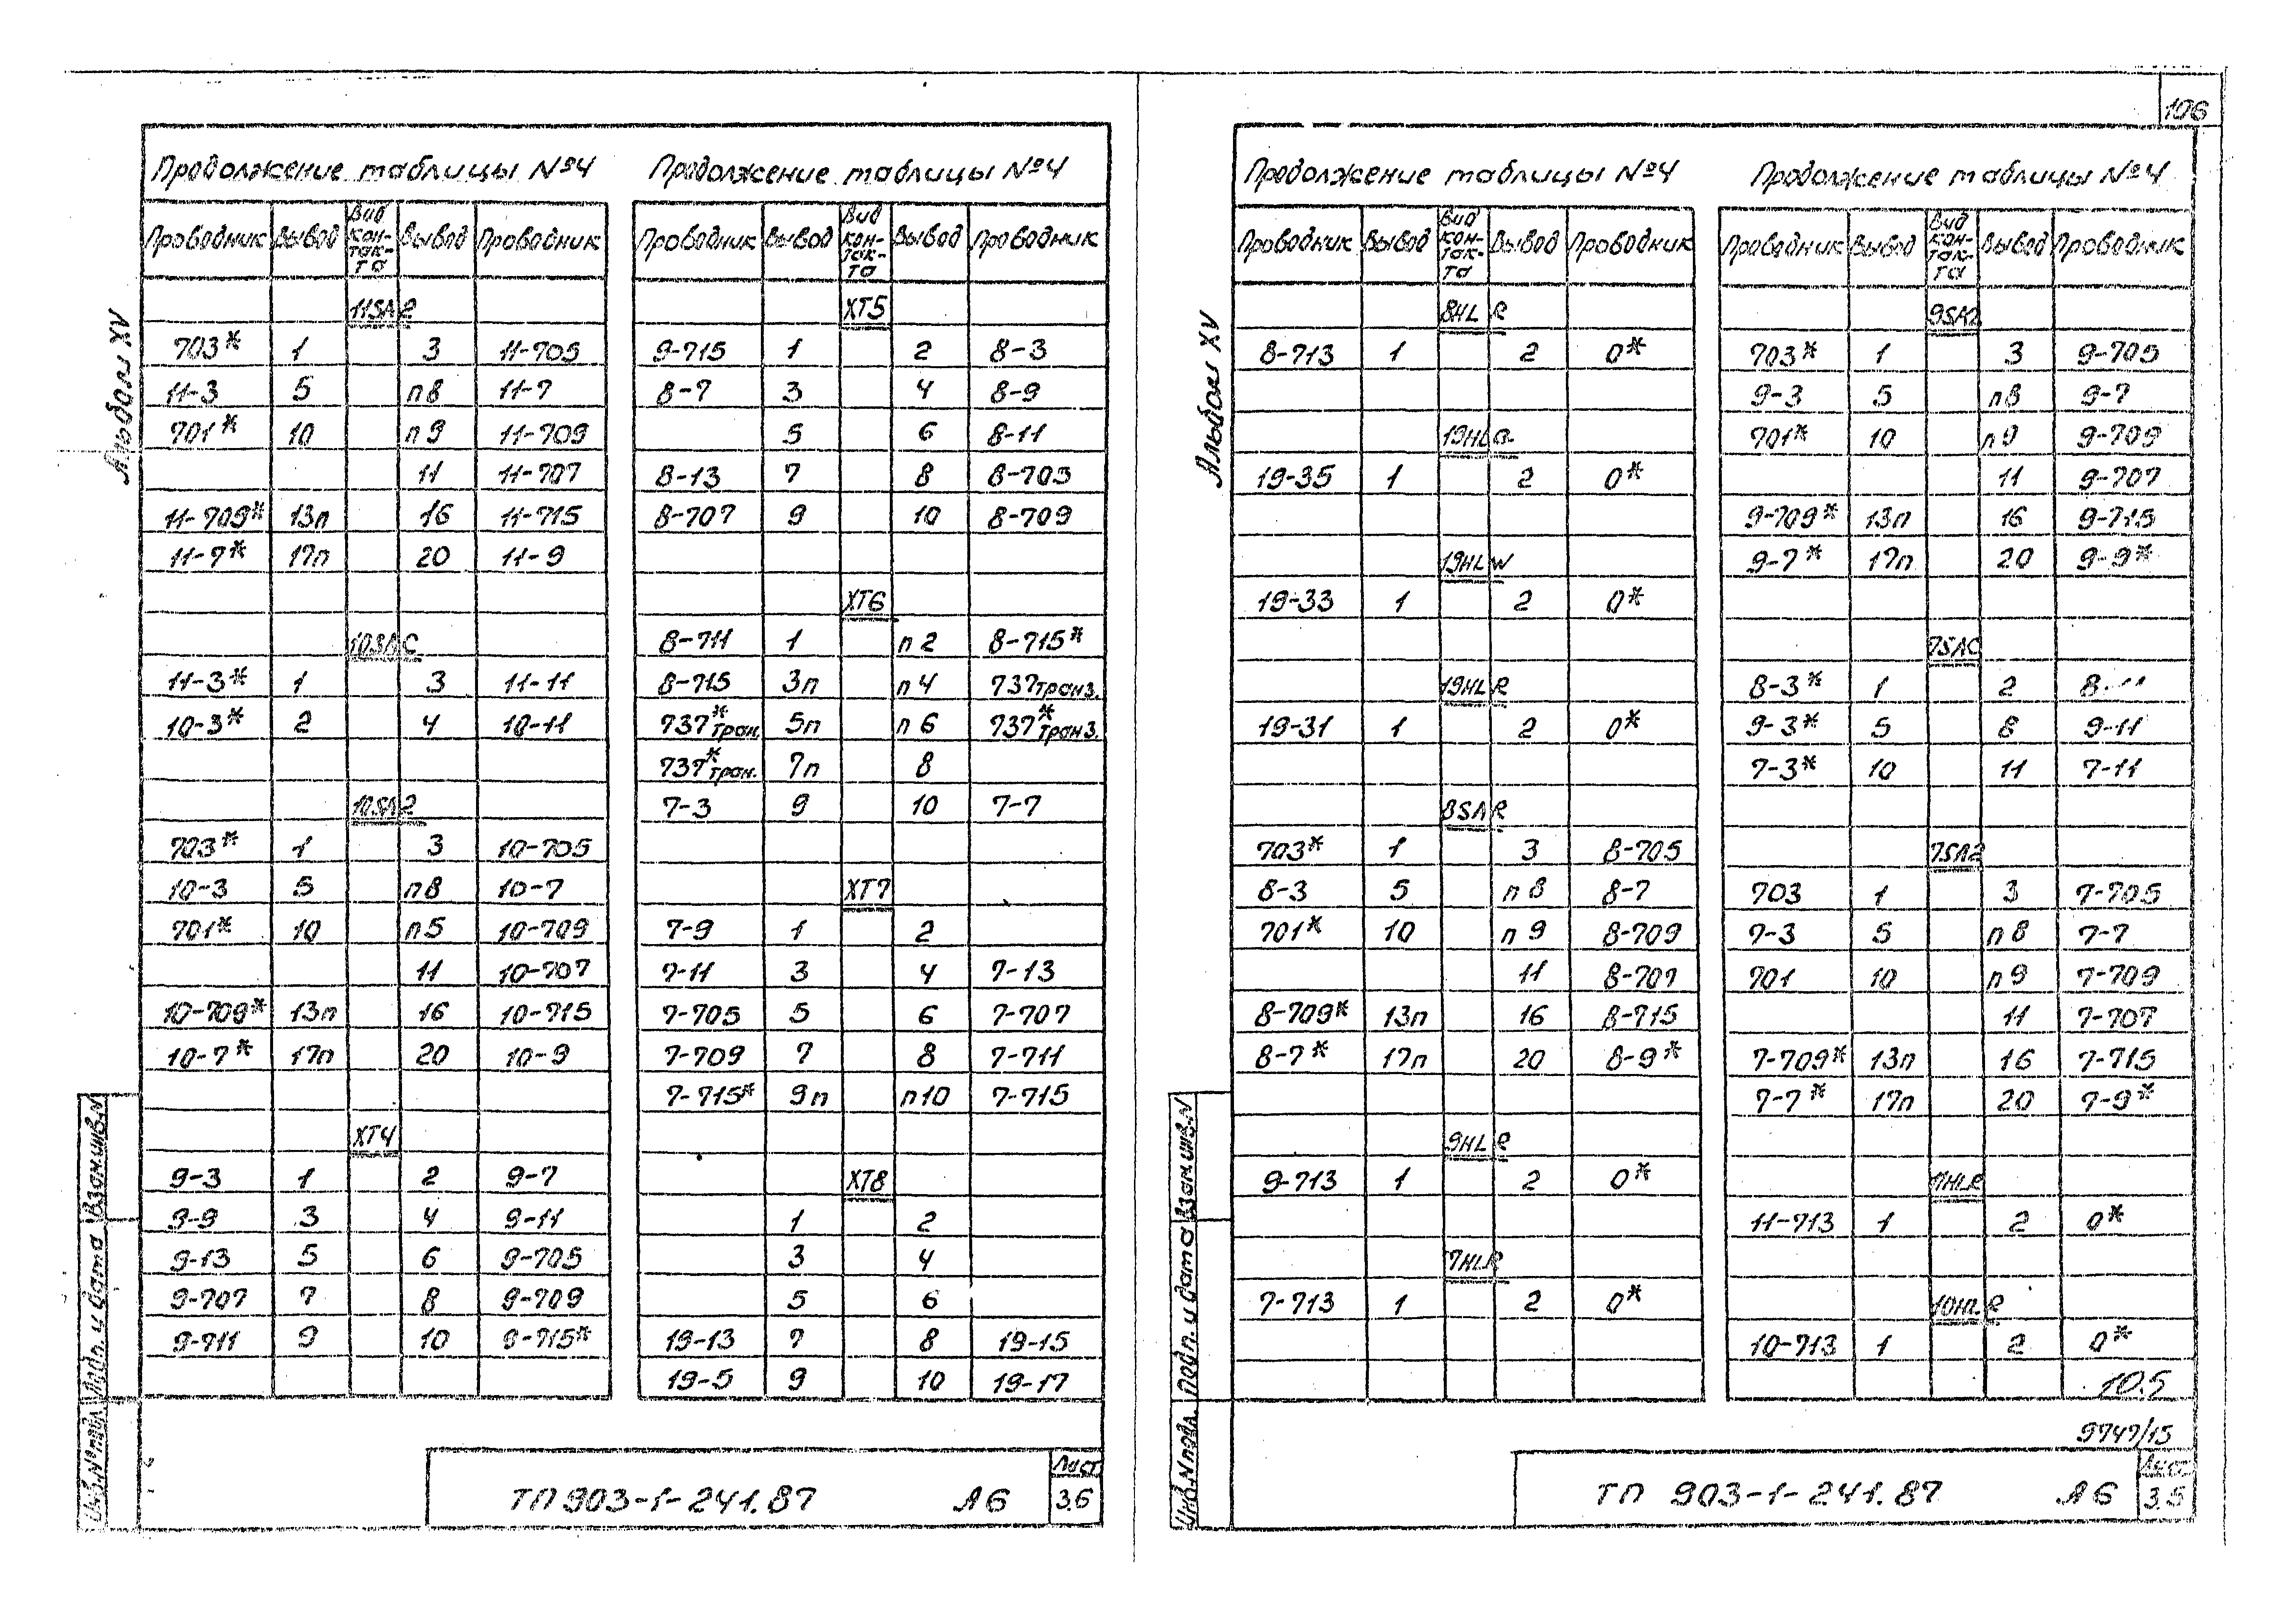 106
Альбом XV
Продолжение таблицы №4
Проводник Вывод Вид кон-так-та Вывод Проводник
11SAR
703* 1 3 11-705
11-3 5 п8 11-7
701* 10 п9 11-709
11 11-707
11-709* 13п 16 11-715
11-7* 17п 20 11-9
10SAC
11-3* 1 3 11-11
10-3* 2 4 10-11
10SAR
703* 1 3 10-705
10-3 5 п8 10-7
701* 10 п5 10-709
11 10-707
10-709* 13п 16 10-715
10-7* 17п 20 10-9
XT4
9-3 1 2 9-7
9-9 3 4 9-11
9-13 5 6 9-705
9-707 7 8 9-709
9-711 9 10 9-715*
Продолжение таблицы №4
Проводник Вывод Вид кон-так-та Вывод Проводник
XT5
9-715 1 2 8-3
8-7 3 4 8-9
5 6 8-11
8-13 7 8 8-705
8-707 9 10 8-709
XT6
8-711 1 п2 8-715*
8-715 3п п4 737транз.
737*тран. 5п п6 737*транз.
737*тран. 7п 8
7-3 9 10 7-7
XT7
7-9 1 2
7-11 3 4 7-13
7-705 5 6 7-707
7-709 7 8 7-711
7-715* 9п п10 7-715
XT8
1 2
3 4
5 6
19-13 7 8 19-15
19-5 9 10 19-17
Инв.№подл. Подп. и дата Взам.инв.N
ТП 903-1-241.87 А6
Лист
3.6
Альбом XV
Продолжение таблицы №4
Проводник Вывод Вид кон-так-та Вывод Проводник
8HLR
8-713 1 2 0*
19HLG
19-35 1 2 0*
19HLW
19-33 1 2 0*
19HLR
19-31 1 2 0*
8SAR
703* 1 3 8-705
8-3 5 п8 8-7
701* 10 п9 8-709
11 8-707
8-709* 13п 16 8-715
8-7* 17п 20 8-9*
9HLR
9-713 1 2 0*
7HLR
7-713 1 2 0*
Продолжение таблицы №4
Проводник Вывод Вид кон-так-та Вывод Проводник
9SAR
703* 1 3 9-705
9-3 5 п8 9-7
701* 10 п9 9-709
11 9-707
9-709* 13п 16 9-715
9-7* 17п 20 9-9*
7SAC
8-3* 1 2
9-3* 5 8 9-11
7-3* 10 11 7-11
7SAR
703 1 3 7-705
7-3 5 п8 7-7
701 10 п9 7-709
11 7-707
7-709* 13п 16 7-715
7-7* 17п 20 7-9*
11HLR
11-713 1 2 0*
10HLR
10-713 1 2 0*
10.5
9747/15
Инв.Nподл. Подп. и дата Взам.инв.N
ТП 903-1-241.87 А6
Лист
3.5